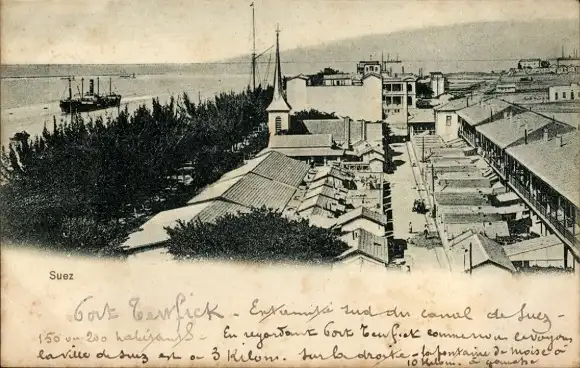 Suez
Port Tewfick - Extremité sud du canal de Suez -
150 ou 200 habitants - En regardant Port Tewfick comme vous le voyez
la ville de Suez est a 3 Kilom. sur la droite - la fontaine de Moïse à
10 Kilom. à gauche